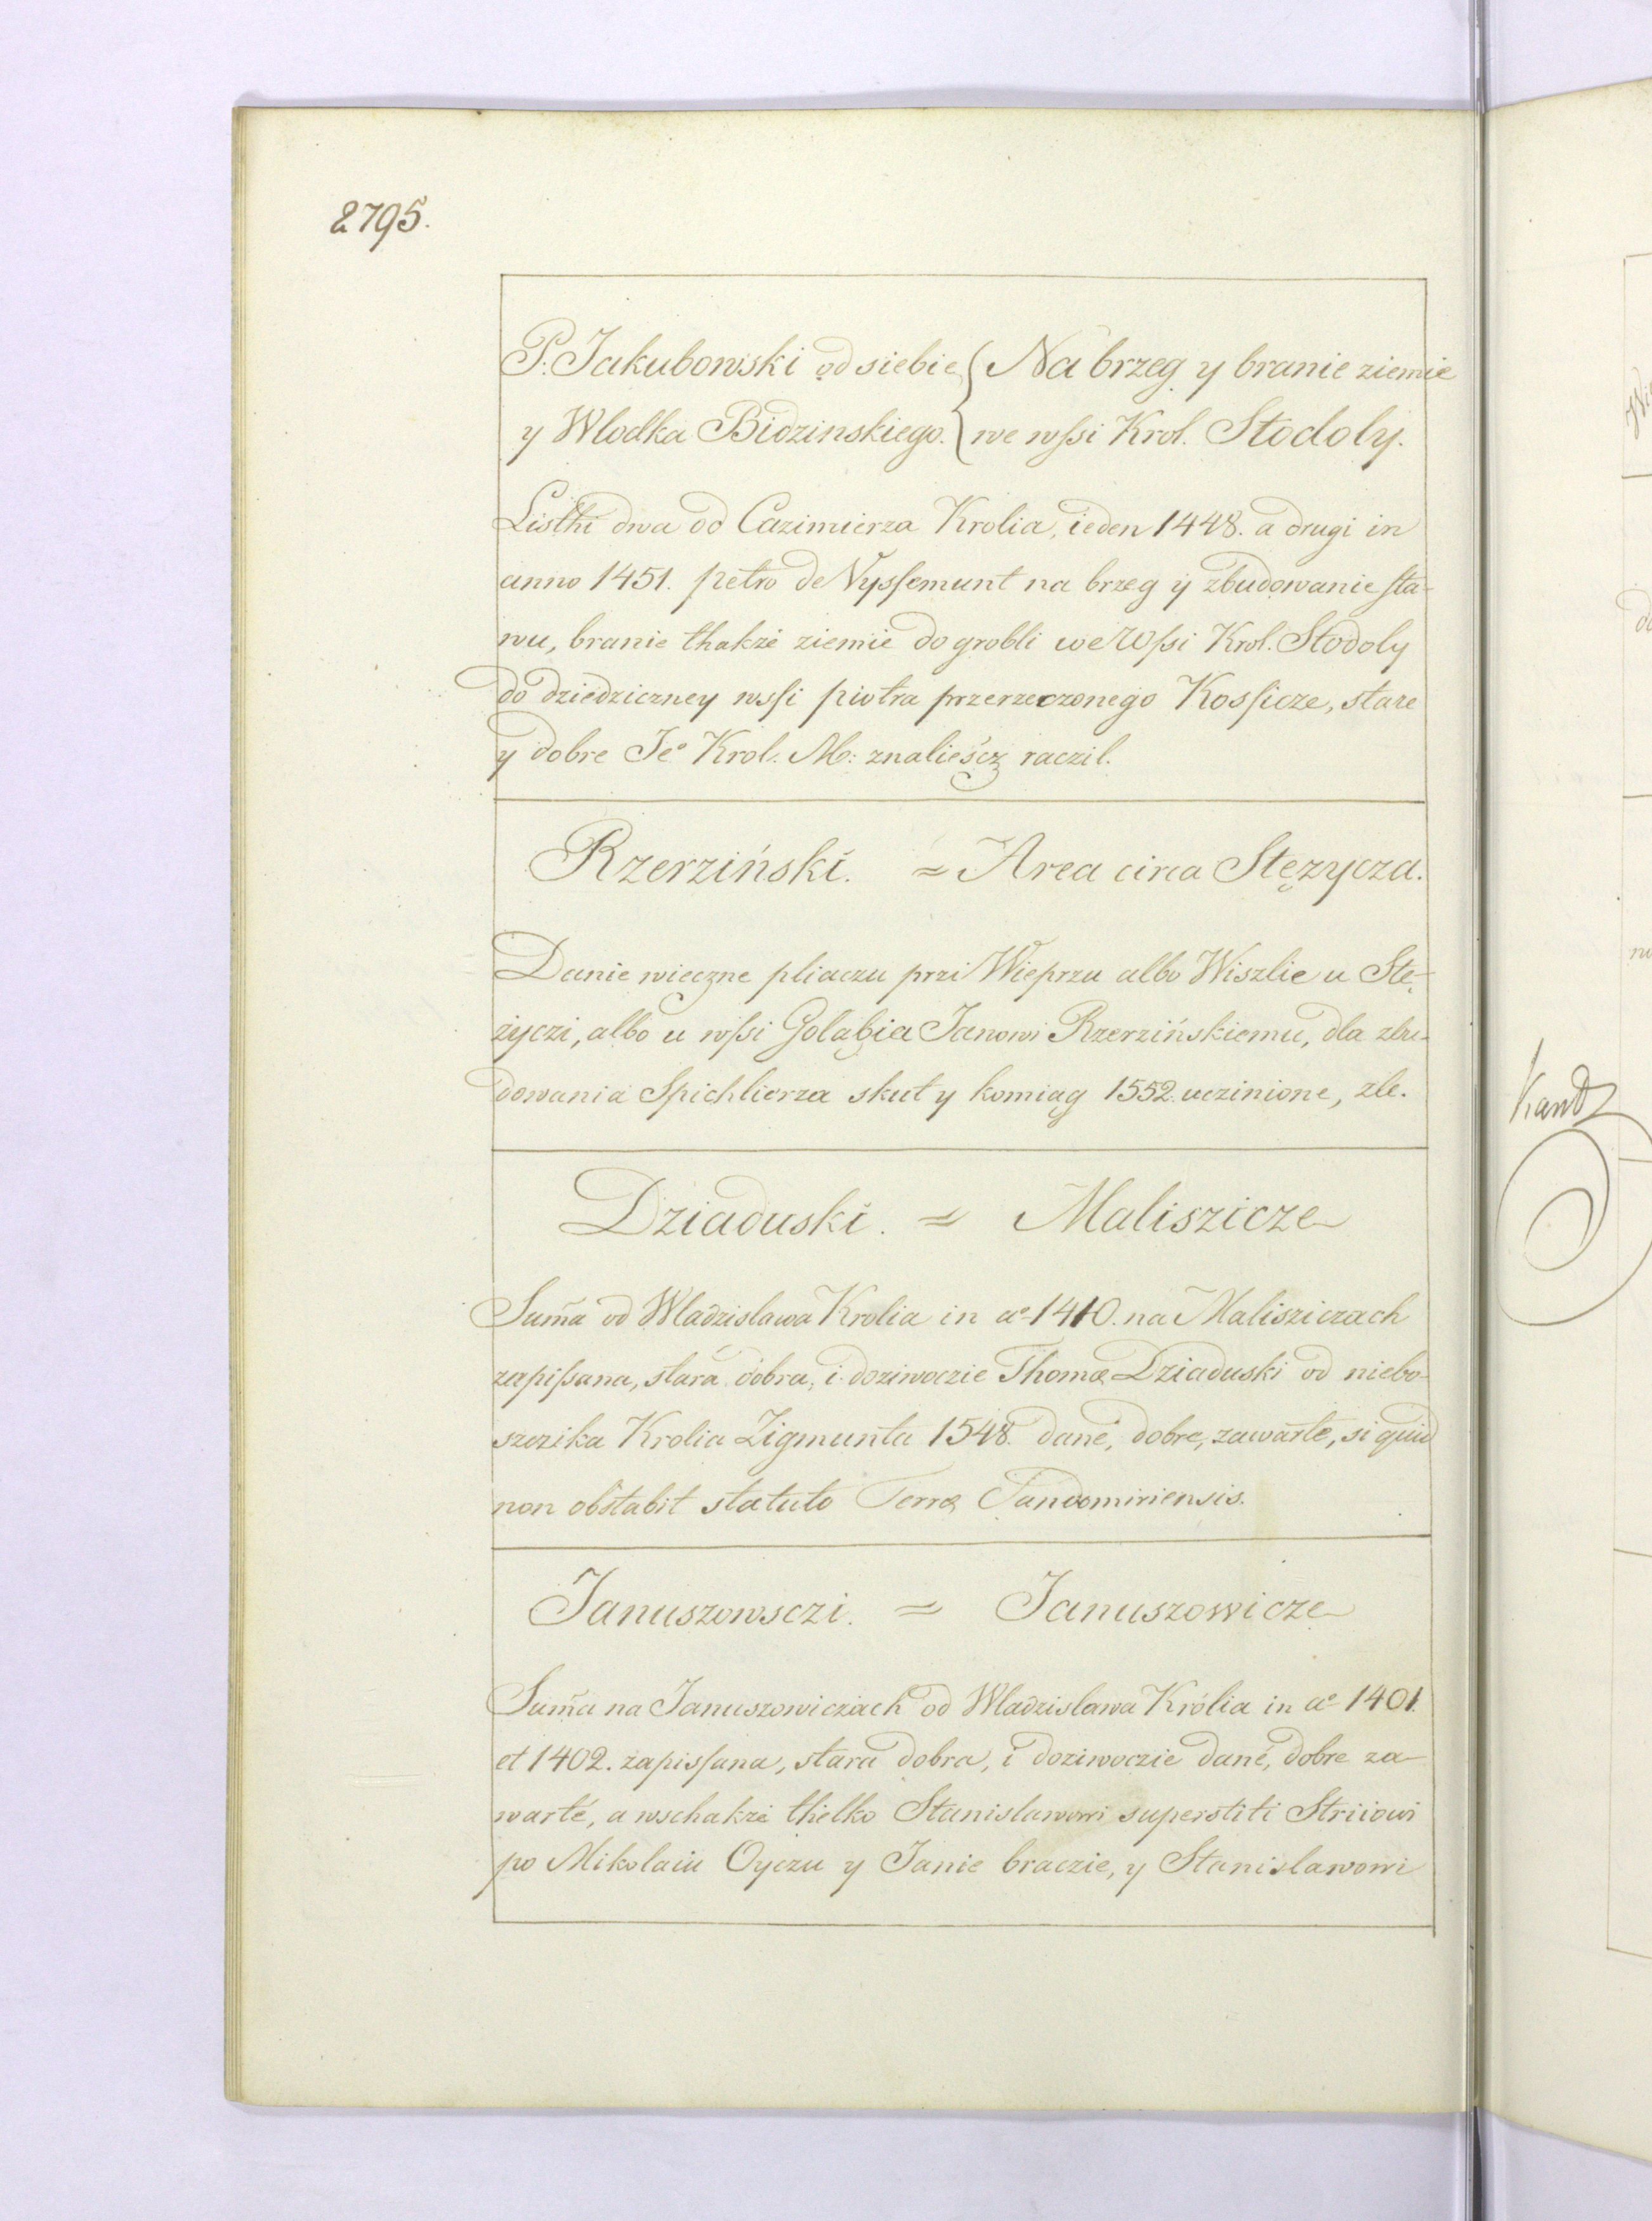 2795.
P. Jakubowski od siebie { Na brzeg y branie ziemie
y Wlodka Bidzinskiego. { we wſsi Krol. Stodoly.
Listhi dwa od Cazimierza Krolia, ieden 1448. a drugi in
anno 1451. petro de Vyſsemunt na brzeg ÿ zbudowanie sta-
wu, branie thakże ziemie do grobli we Wſsi Krol. Stodoly
do dziedziczney wsſi piotra przerzeczonego Kosſicze, stare
y dobre Jeº Krol. M: znalieścz raczil.
Rzerziński. = Area circa Stęzycza.
Danie wieczne pliaczu przi Wieprzu albo Wiszlie u Stę-
życzi, albo u wſsi Goląbia Janowi Rzerzińskiemu, dla zbu-
dowania Spichlierza skut y komiag 1552. uczinione, zle.
Dziaduski. = Maliszicze
Sum̃a od Wladzislawa Krolia in aº 1410. na Malisziczach
zapiſsana, stara dobra, i doziwoczie Thomæ Dziaduski od niebo-
szczika Krolia Zigmunta 1548. dane, dobre, zawarte, si quid
non obstabit statuto Terræ Sandomiriensis.
Januszowsczi. = Januszowicze
Sum̃a na Januszowiczach od Wladzislawa Królia in aº 1401.
et 1402. zapisſana, stara dobra, i doziwoczie dane, dobre za-
warté, a wschakże thielko Stanislawowi superstiti Striiowi
po Mikolaiu Oyczu y Janie braczie, y Stanislawowi